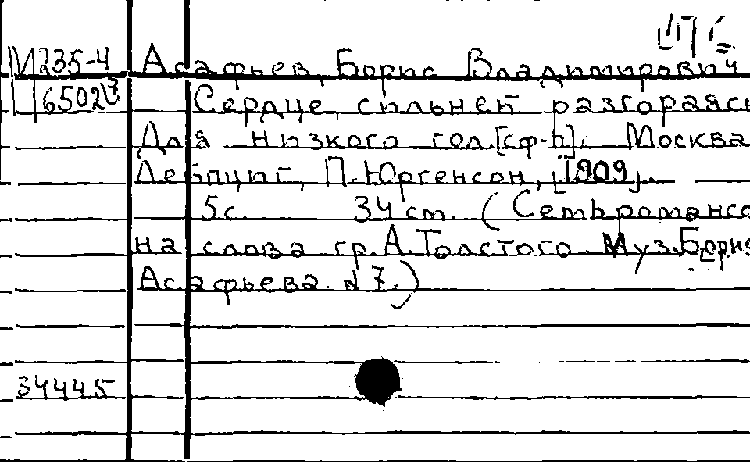 М235-4 Асафьев, Борис Владимирович
Ц6502³ Сердце, сильней разгораясь
Для низкого гол. [сф-п]. Москва
Лейпциг, П. Юргенсон, [1909].
5с. 34 см. (Семь романсо
на слова гр. А. Толстого Муз. Борис
Асафьева. №7.)
34445